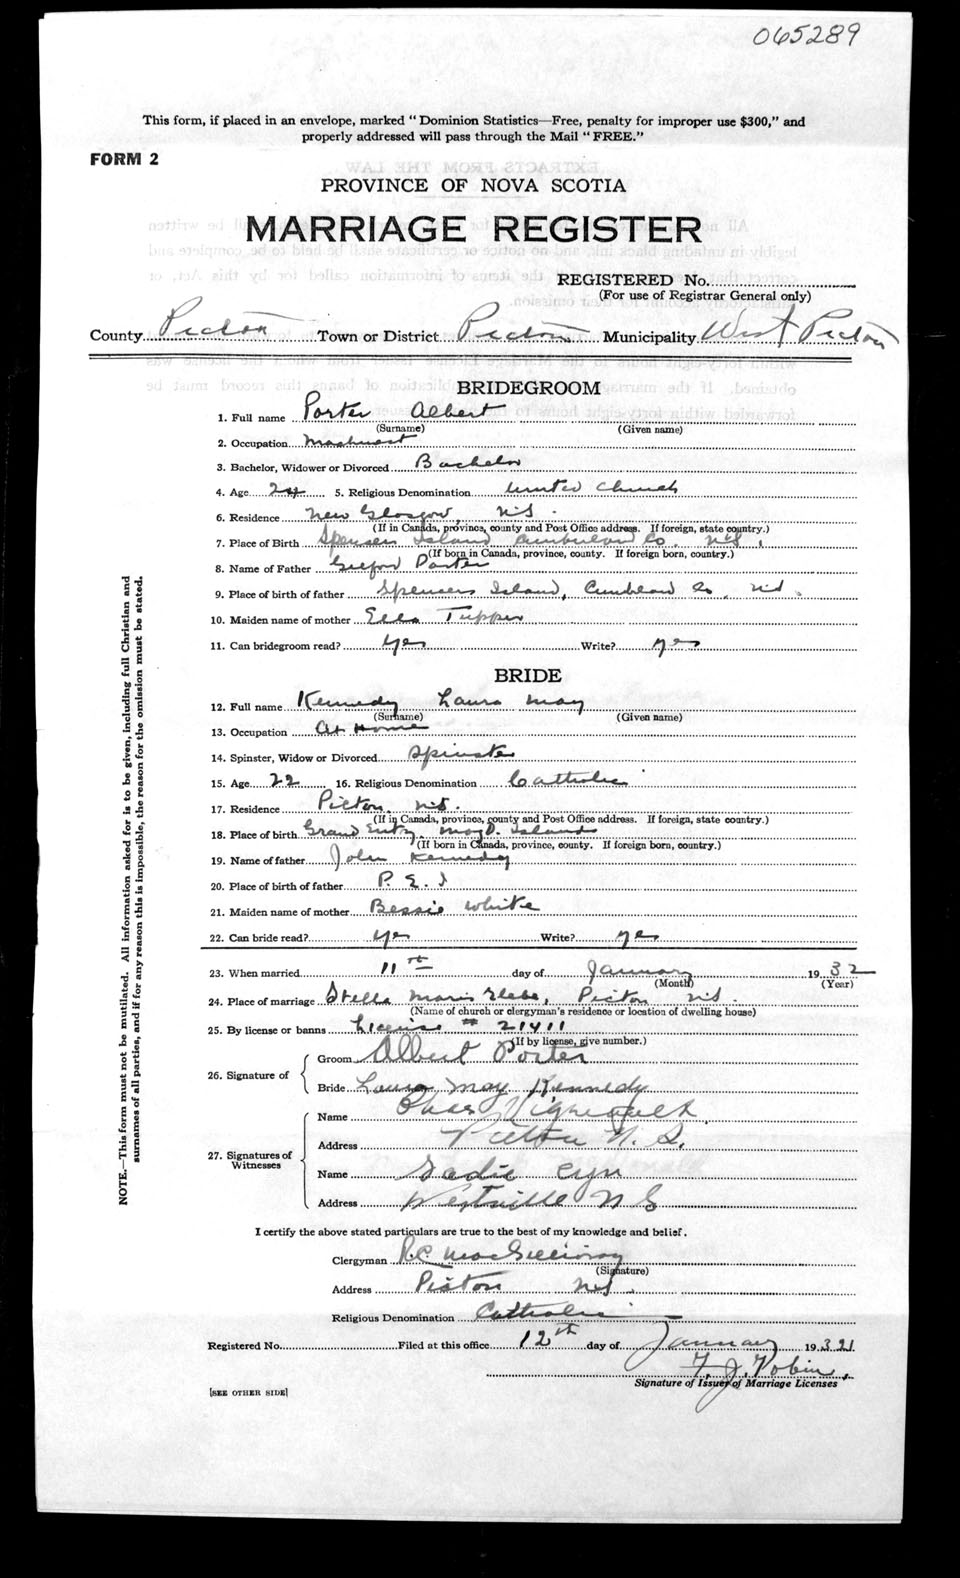 065289
This form, if placed in an envelope, marked "Dominion Statistics—Free, penalty for improper use $300," and
properly addressed will pass through the Mail "FREE."
FORM 2
PROVINCE OF NOVA SCOTIA
MARRIAGE REGISTER
REGISTERED No.
(For use of Registrar General only)
County Pictou Town or District Pictou Municipality West Pictou
BRIDEGROOM
1. Full name Porter Albert
(Surname) (Given name)
2. Occupation
3. Bachelor, Widower or Divorced Bachelor
4. Age 24 5. Religious Denomination United Church
6. Residence New Glasgow, N.S.
(If in Canada, province, county and Post Office address. If foreign, state country.)
7. Place of Birth Spencers Island Cumberland Co. N.S.
(If born in Canada, province, county. If foreign born, country.)
8. Name of Father Porter
9. Place of birth of father Spencers Island, Cumberland Co. N.S.
10. Maiden name of mother Ella Tupper
11. Can bridegroom read? yes Write? yes
BRIDE
12. Full name Kennedy Laura May
(Surname) (Given name)
13. Occupation At Home
14. Spinster, Widow or Divorced Spinster
15. Age 22 16. Religious Denomination Catholic
17. Residence Pictou, N.S.
(If in Canada, province, county and Post Office address. If foreign, state country.)
18. Place of birth Grand Entry, Magd. Islands
(If born in Canada, province, county. If foreign born, country.)
19. Name of father John Kennedy
20. Place of birth of father P. E. I
21. Maiden name of mother Bessie White
22. Can bride read? yes Write? yes
23. When married 11th day of January 1932
(Month) (Year)
24. Place of marriage Stella Maris Glebe, Pictou N.S.
(Name of church or clergyman's residence or location of dwelling house)
25. By license or banns License # 21411
(If by license, give number.)
26. Signature of
Groom Albert Porter
Bride Laura May Kennedy
27. Signatures of Witnesses
Name Chas Vigneault
Address Pictou N. S.
Name Sadie Cyn
Address Westville N S
I certify the above stated particulars are true to the best of my knowledge and belief.
Clergyman R.C. MacGillivray
(Signature)
Address Pictou N.S.
Religious Denomination Catholic
Registered No. Filed at this office 12th day of January 1932
F. J.
Signature of Issuer of Marriage Licenses
[SEE OTHER SIDE]
NOTE.—This form must not be mutilated. All information asked for is to be given, including full Christian and
surnames of all parties, and if for any reason this is impossible, the reason for the omission must be stated.